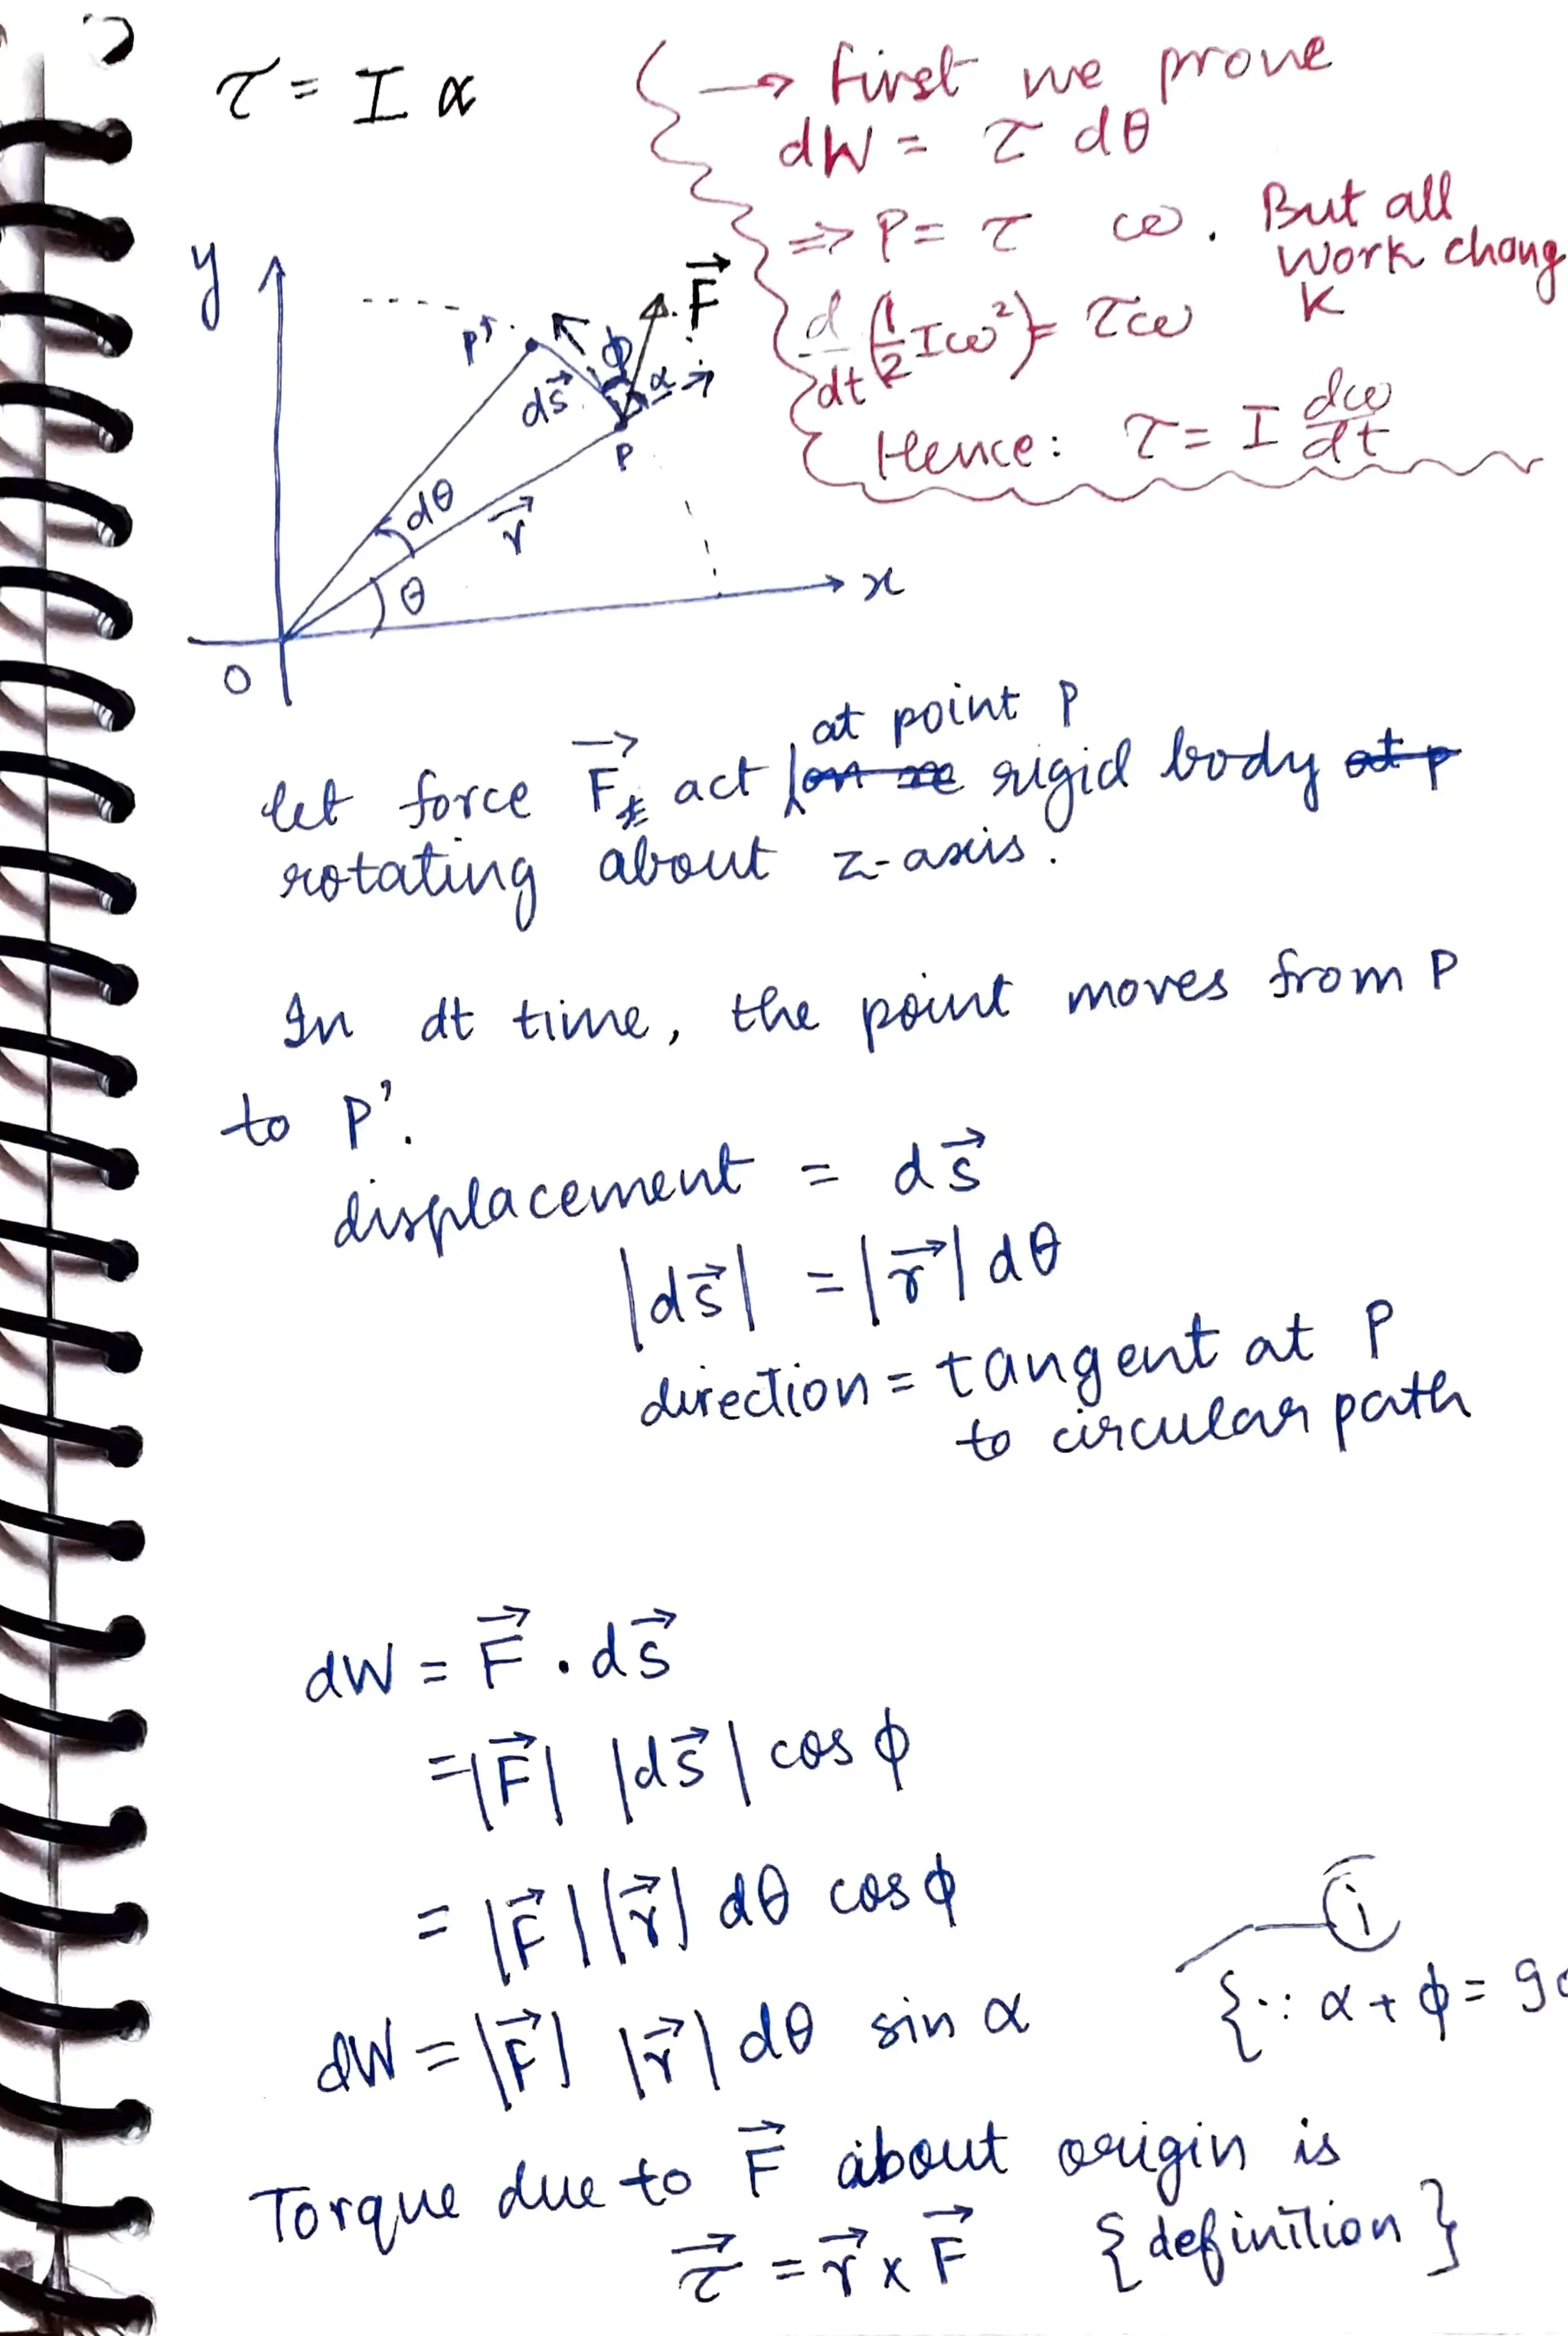 τ = I α
→ First we prove
dW = τ dθ
⇒ P = τ ω. But all
work chang
K
d/dt (1/2 Iω²) = τω
Hence: τ = I dω/dt
y
F⃗
P'
ϕ
α
r⃗
ds⃗
P
dθ
r⃗
θ
x
O
at point P
let force F⃗ act rigid body
rotating about z-axis.
In dt time, the point moves from P
to P'.
displacement = ds⃗
|ds⃗| = |r⃗| dθ
direction = tangent at P
to circular path
dW = F⃗ . ds⃗
= |F⃗| |ds⃗| cos ϕ
= |F⃗| |r⃗| dθ cos ϕ
i
dW = |F⃗| |r⃗| dθ sin α {∵ α + ϕ = 90
Torque due to F⃗ about origin is
τ⃗ = r⃗ x F⃗ {definition}